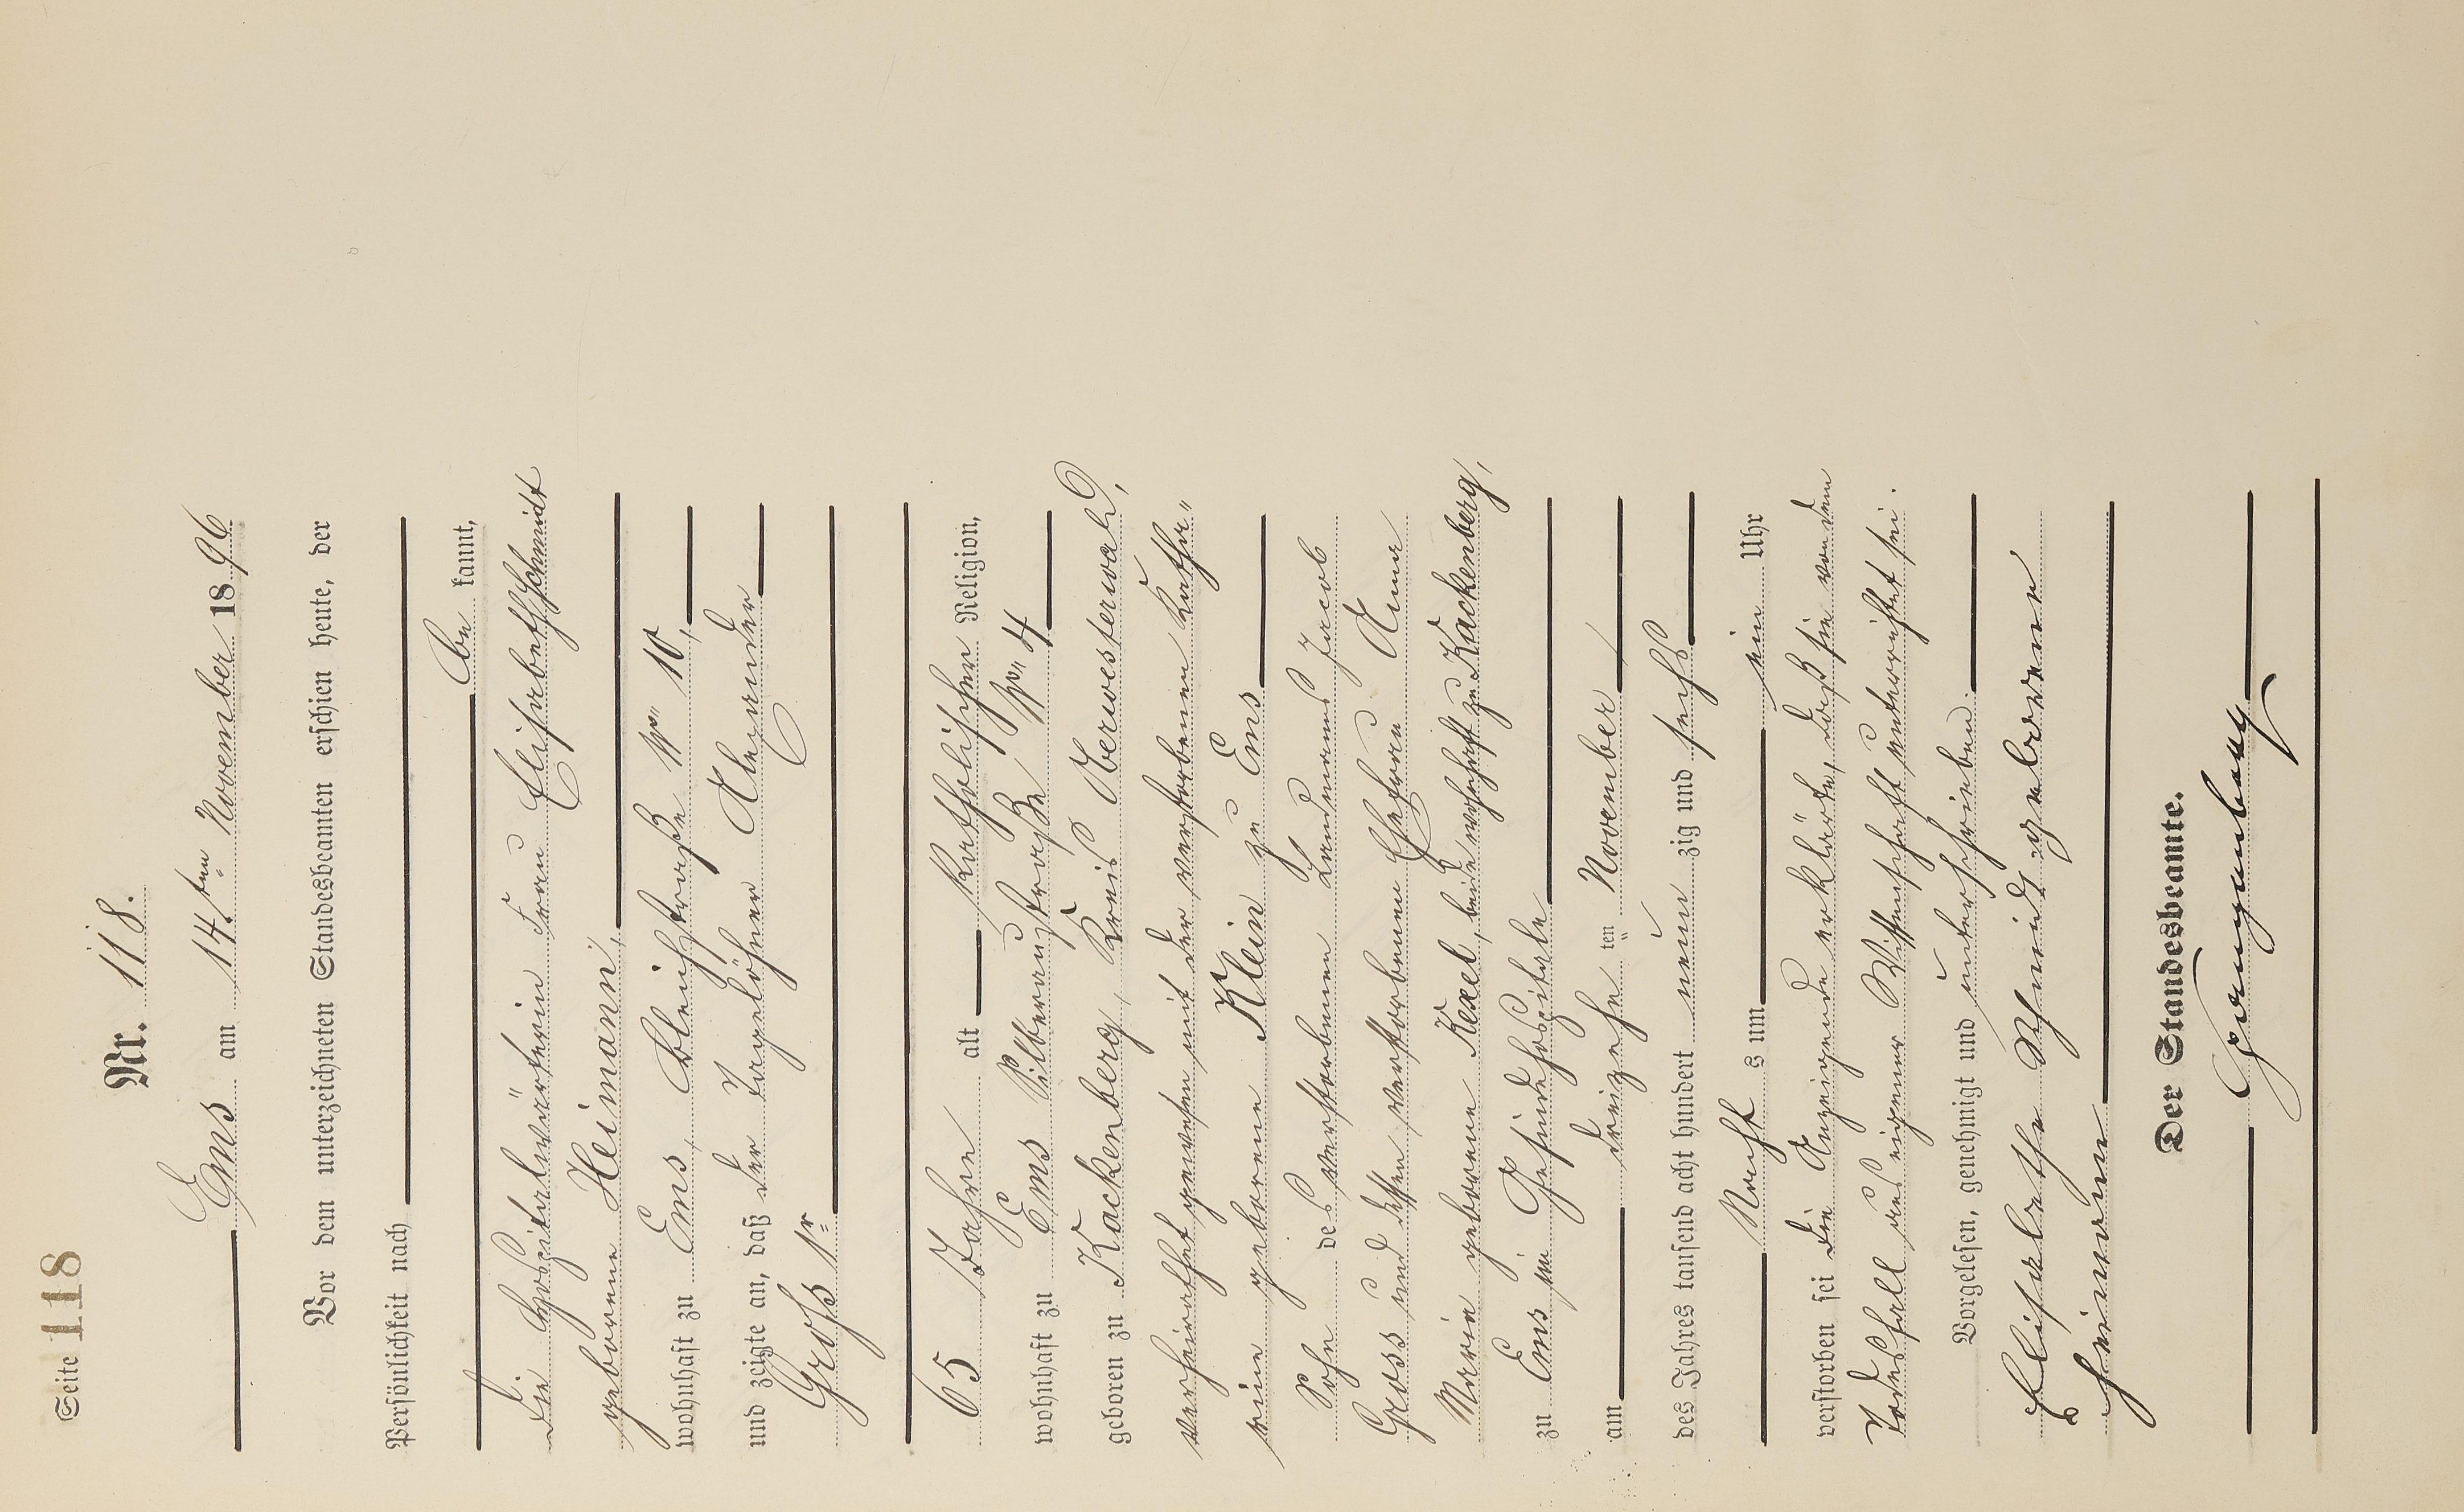 Seite 118
Nr. 118.
Ems am 14ten November 1896
Vor dem unterzeichneten Standesbeamten erschien heute, der
Persönlichkeit nach
be kannt,
die Hospitalwärterin Frau Elisabeth Schmidt
geborene Heimann,
wohnhaft zu Ems, Bleichstraße No 10,
und zeigte an, daß der Tagelöhner Alexander
Groß 1r
65 Jahre alt katholischer Religion,
wohnhaft zu Ems Silberaustraße No 4
geboren zu Kackenberg, Kreis Oberwesterwald,
verheirathet gewesen mit der verstorbenen Katha„
rina geborene Klein zu Ems
Sohn des verstorbenen Landmanns Jacob
Gross und dessen verstorbenen Ehefrau Anna
Maria geborene Kexel, beide wohnhaft zu Kackenberg,
zu Ems im Gesindehospitale
am dreizehn ten November
des Jahres tausend acht hundert neun zig und sechs
Nacht s um ein Uhr
verstorben sei die Anzeigende erklärte, daß sie von dem
Todesfall aus eigener Wissenschaft unterrichtet sei.
Vorgelesen, genehmigt und unterschrieben.
Elisabethe Schmidt geborene
Heimann
Der Standesbeamte.